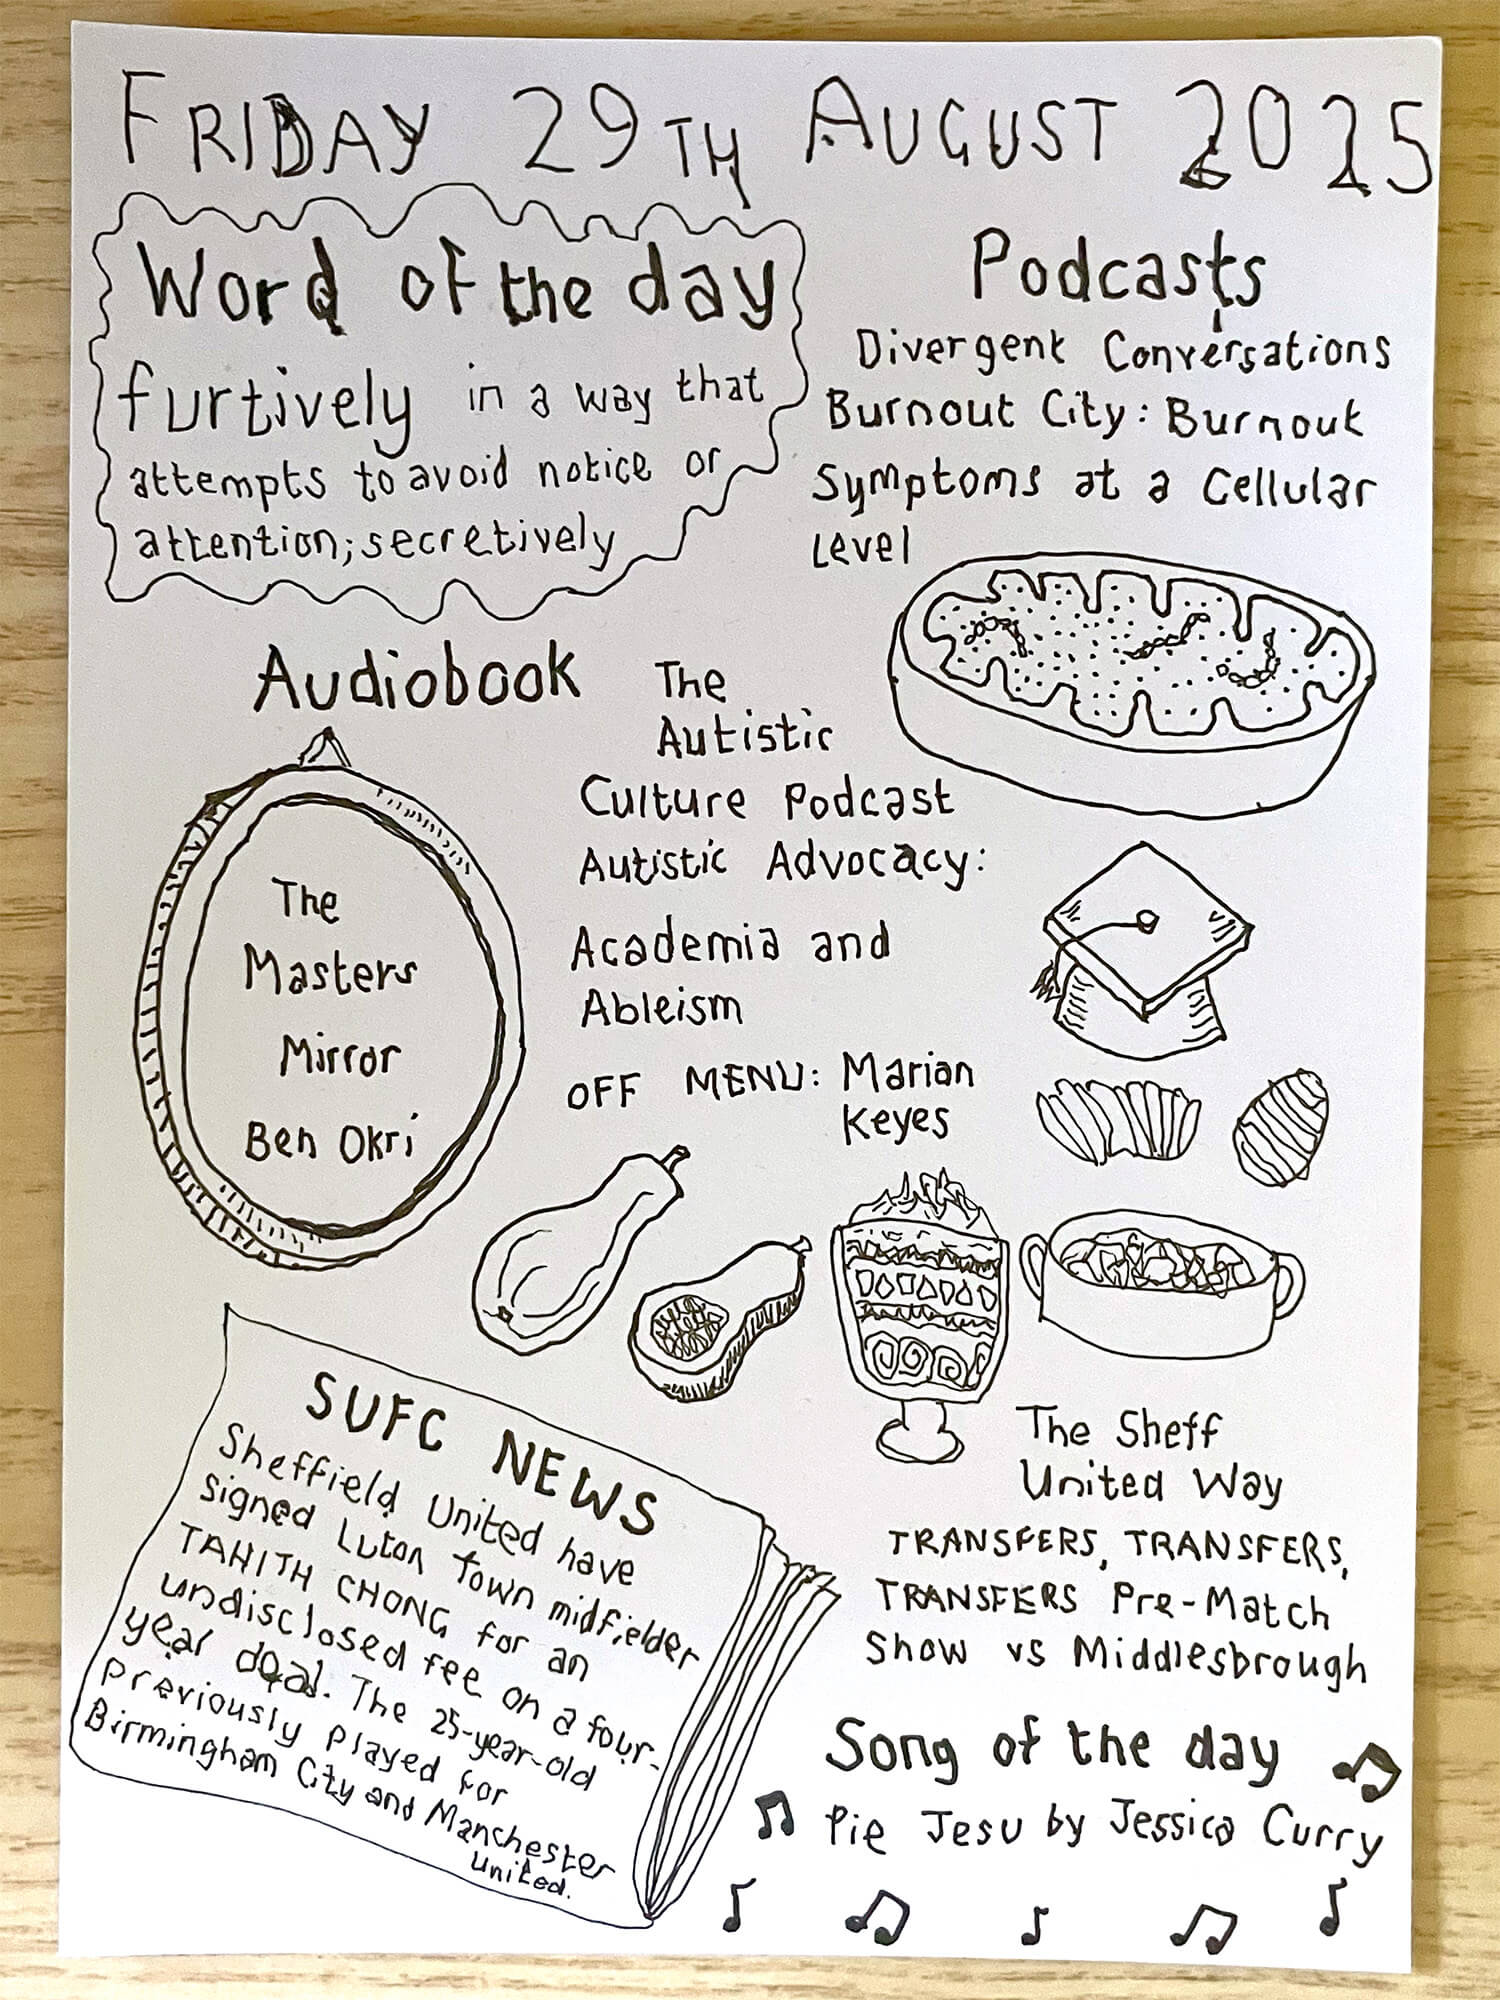 FRIDAY 29TH AUGUST 2025
Word of the day
furtively in a way that
attempts to avoid notice or
attention; secretively
Podcasts
Divergent Conversations
Burnout City: Burnout
Symptoms at a Cellular
Level
Audiobook
The
Masters
Mirror
Ben Okri
The
Autistic
Culture Podcast
Autistic Advocacy:
Academia and
Ableism
OFF MENU: Marian
Keyes
SUFC NEWS
Sheffield United have
signed Luton Town midfielder
TAHITH CHONG for an
undisclosed fee on a four-
year deal. The 25-year-old
previously played for
Birmingham City and Manchester
United.
The Sheff
United Way
TRANSFERS, TRANSFERS,
TRANSFERS Pre-Match
Show vs Middlesbrough
Song of the day
Pie Jesu by Jessica Curry